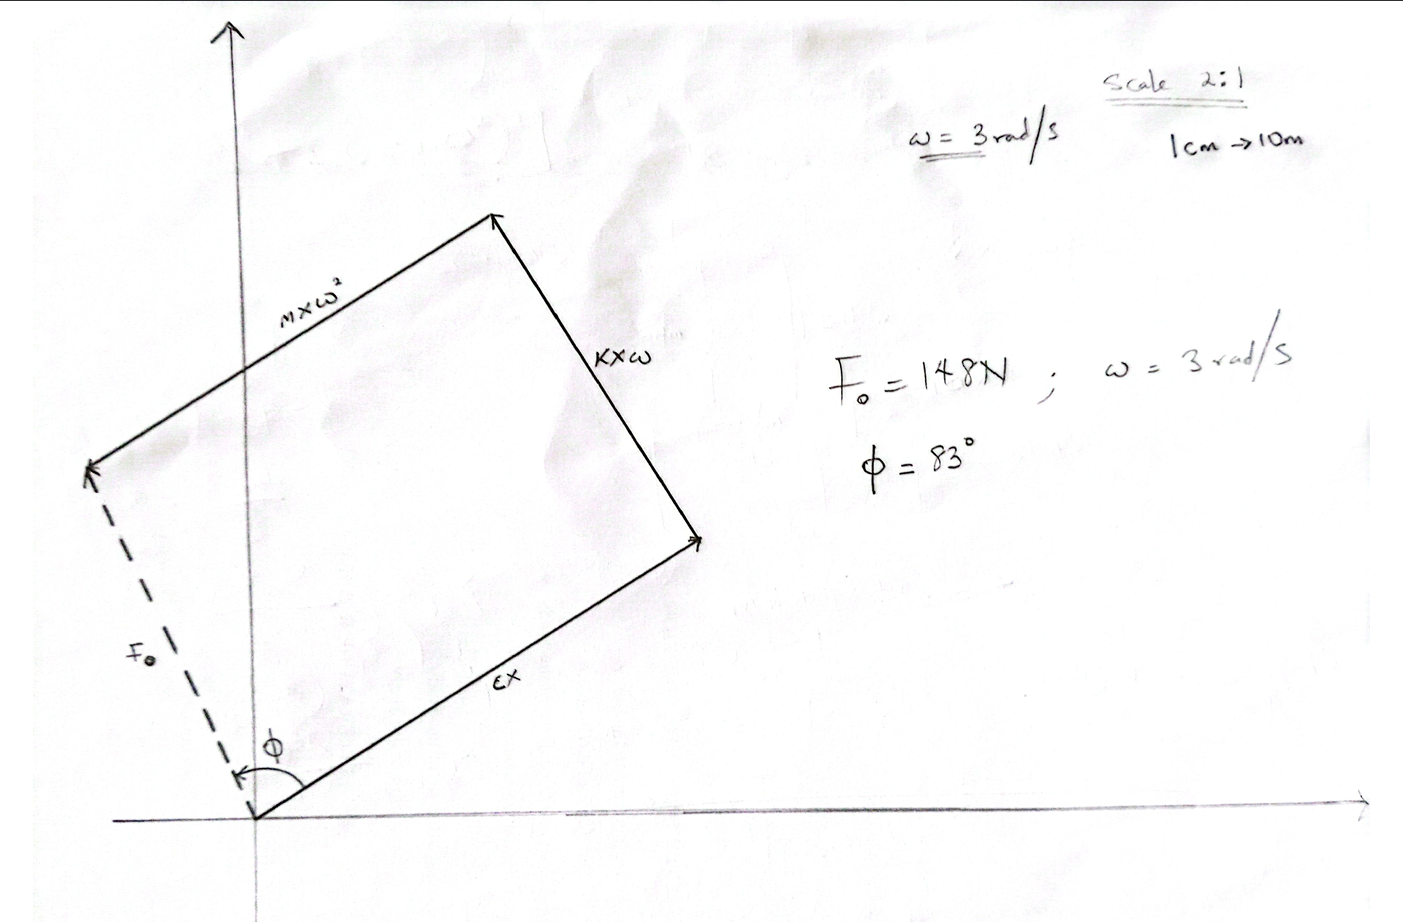 Scale 2:1
ω = 3 rad/s
1cm → 10m
M×ω²
K×ω
F₀ = 148N ; ω = 3 rad/s
ϕ = 83°
F₀
εx
ϕ